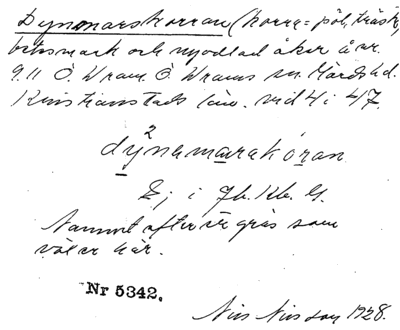 Dynamarskorran (korra = pöl, träsk)
betesmark och nyodlad åker å nr.
9. 11 Ö. Wram. Ö. Wrams sn. Gärds hd.
Kristianstads län. vid 4 i 47
dynamarakóran
Ej i Jb. Kb. G.
Namnet efter gräs som
växer här.
Nr 5342.
Nils Nilsson 1928.